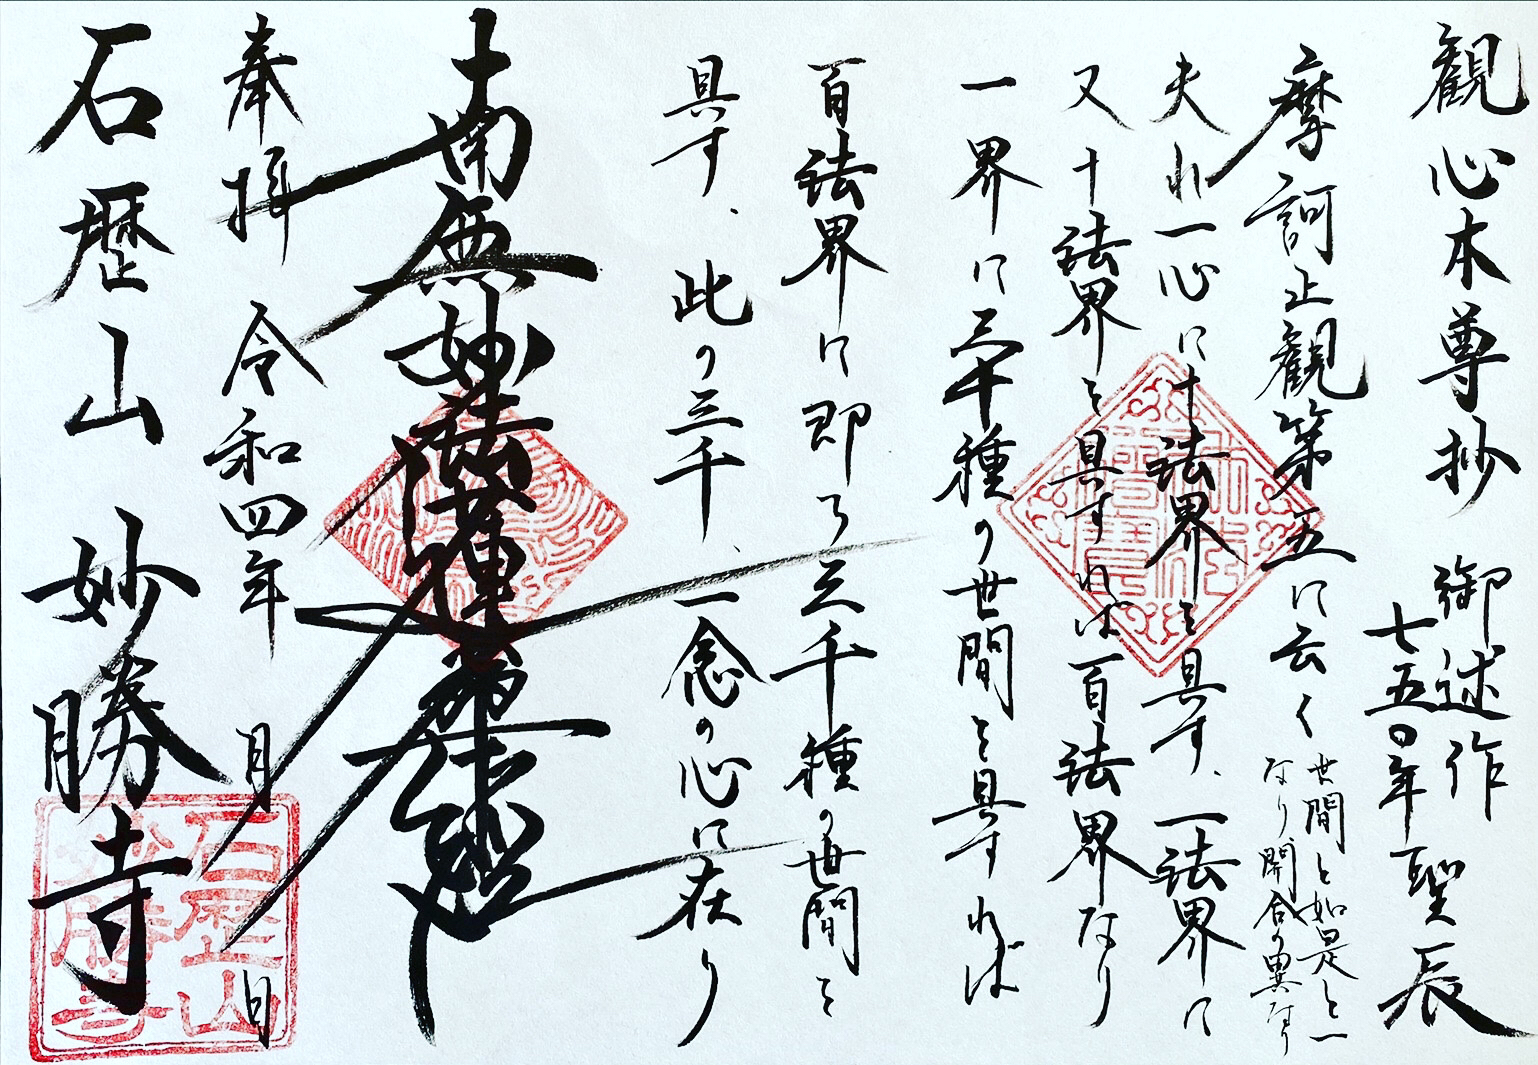 観心本尊抄 御述作
七五〇年聖辰
摩訶止観第五に云く
世間と如是と一
なり開合の異なり
夫れ一心に十法界を具す、一法界に
又十法界を具すれば百法界なり
一界に三千種の世間を具すれば
百法界に即ち三千種の世間を
具す、此の三千、一念の心に在り
南無妙法蓮華経
奉拝 令和四年 月 日
石歴山 妙勝寺
石歴山
妙勝寺